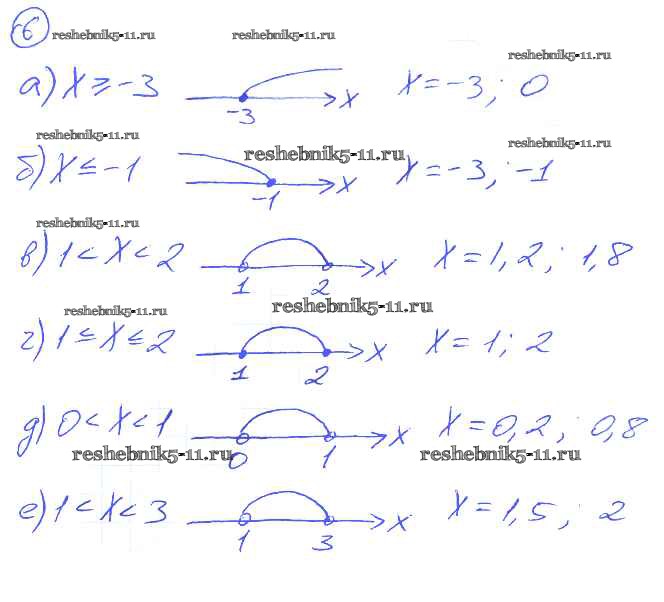 6 reshebnik5-11.ru reshebnik5-11.ru
reshebnik5-11.ru
а) x ≥ -3 -3 x x = -3; 0
reshebnik5-11.ru reshebnik5-11.ru reshebnik5-11.ru
б) x ≤ -1 -1 x x = -3; -1
reshebnik5-11.ru
в) 1 < x < 2 1 2 x x = 1,2; 1,8
reshebnik5-11.ru reshebnik5-11.ru
г) 1 ≤ x ≤ 2 1 2 x x = 1; 2
д) 0 < x < 1 0 1 x x = 0,2; 0,8
reshebnik5-11.ru reshebnik5-11.ru
е) 1 < x < 3 1 3 x x = 1,5; 2